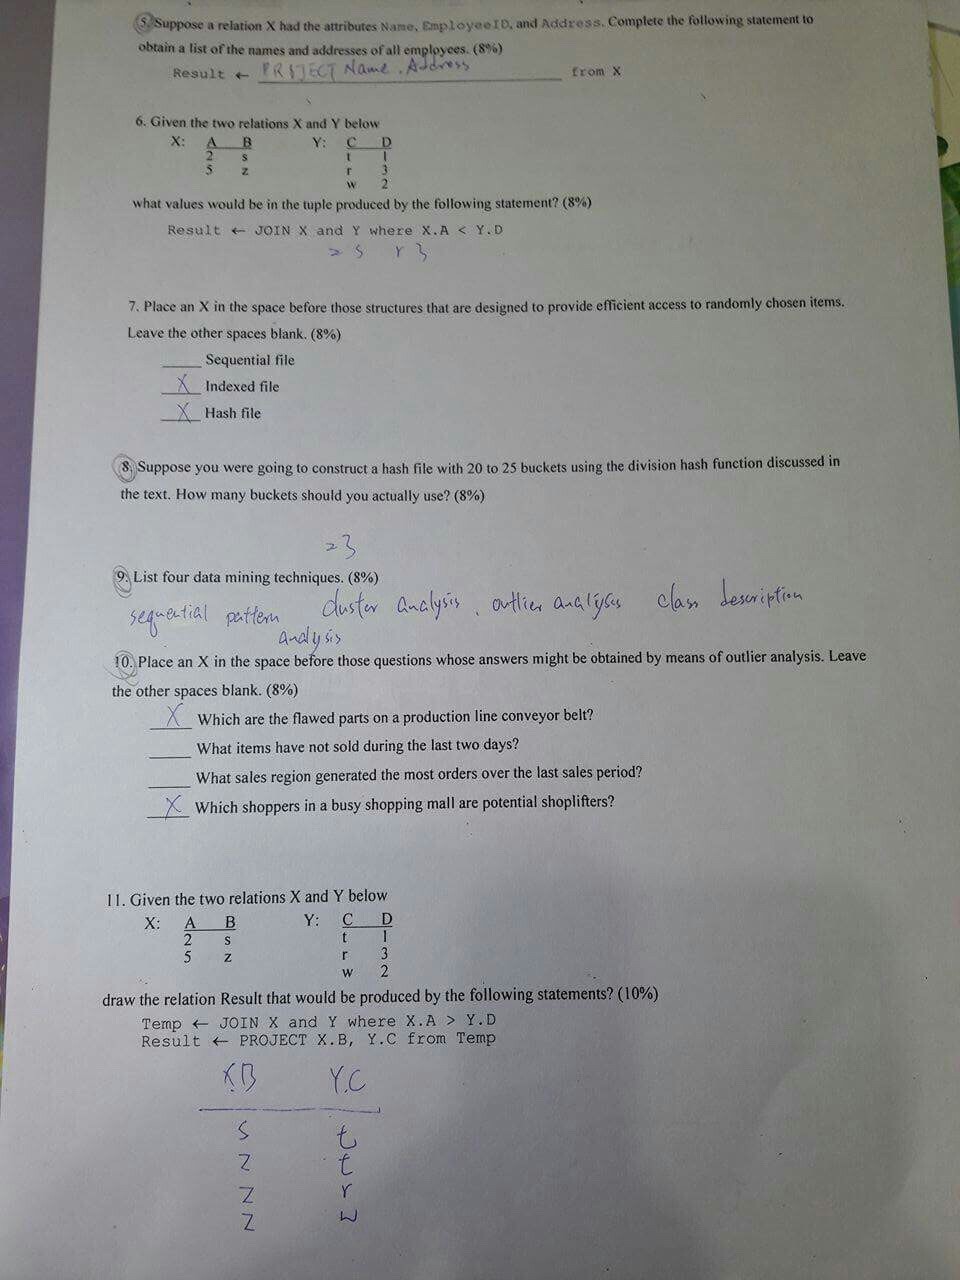 5. Suppose a relation X had the attributes Name, EmployeeID, and Address. Complete the following statement to
obtain a list of the names and addresses of all employees. (8%)
Result ← PROJECT Name, Address from X
6. Given the two relations X and Y below
X: A B Y: C D
2 s t 1
5 z r 3
w 2
what values would be in the tuple produced by the following statement? (8%)
Result ← JOIN X and Y where X.A < Y.D
2 s r 3
7. Place an X in the space before those structures that are designed to provide efficient access to randomly chosen items.
Leave the other spaces blank. (8%)
____ Sequential file
X Indexed file
X Hash file
8. Suppose you were going to construct a hash file with 20 to 25 buckets using the division hash function discussed in
the text. How many buckets should you actually use? (8%)
23
9. List four data mining techniques. (8%)
sequential pattern cluster analysis, outlier analysis class description
analysis
10. Place an X in the space before those questions whose answers might be obtained by means of outlier analysis. Leave
the other spaces blank. (8%)
X Which are the flawed parts on a production line conveyor belt?
____ What items have not sold during the last two days?
____ What sales region generated the most orders over the last sales period?
X Which shoppers in a busy shopping mall are potential shoplifters?
11. Given the two relations X and Y below
X: A B Y: C D
2 s t 1
5 z r 3
w 2
draw the relation Result that would be produced by the following statements? (10%)
Temp ← JOIN X and Y where X.A > Y.D
Result ← PROJECT X.B, Y.C from Temp
X.B Y.C
s t
z t
z r
z w